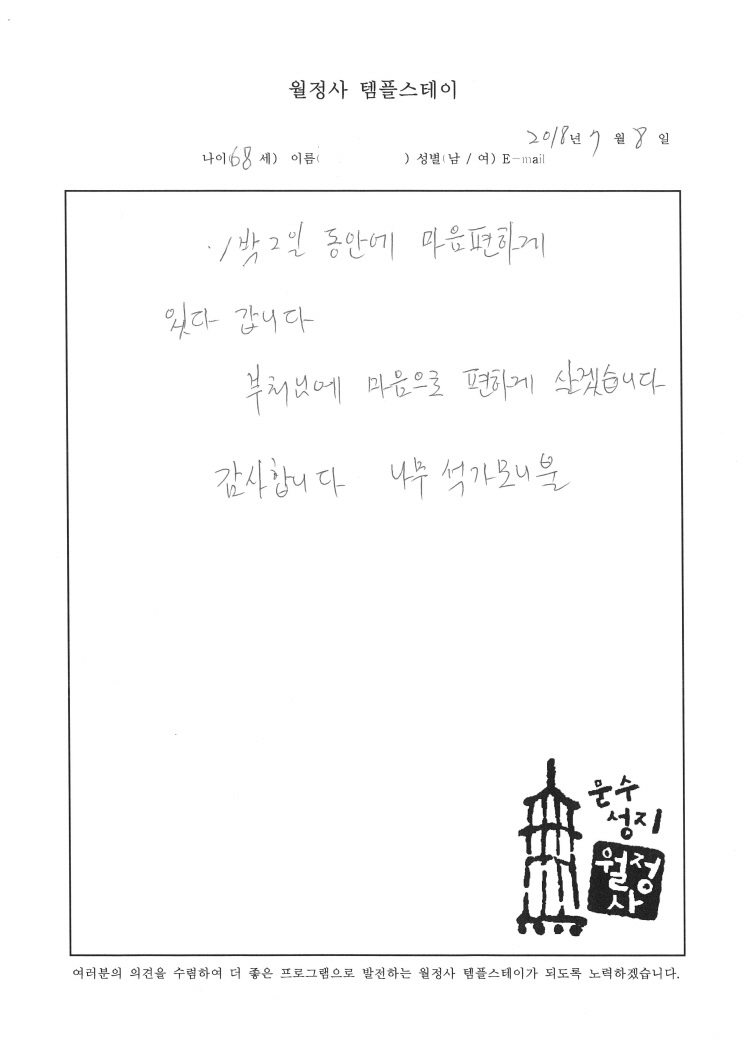 월정사 템플스테이
2018년 7 월 8 일
나이(68 세) 이름( ) 성별(남 / 여) E-mail
. 1박 2일 동안에 마음편하게
있다 갑니다
부처님에 마음으로 편하게 살겠습니다
감사합니다 나무 석가모니불
문수
성지
월정
사
여러분의 의견을 수렴하여 더 좋은 프로그램으로 발전하는 월정사 템플스테이가 되도록 노력하겠습니다.